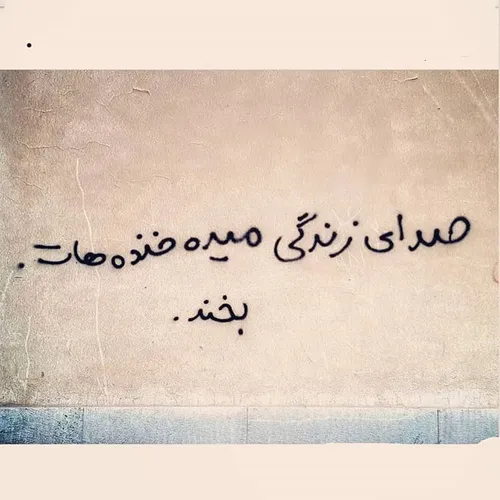 صدای زندگی میده خنده هات.
بخند.